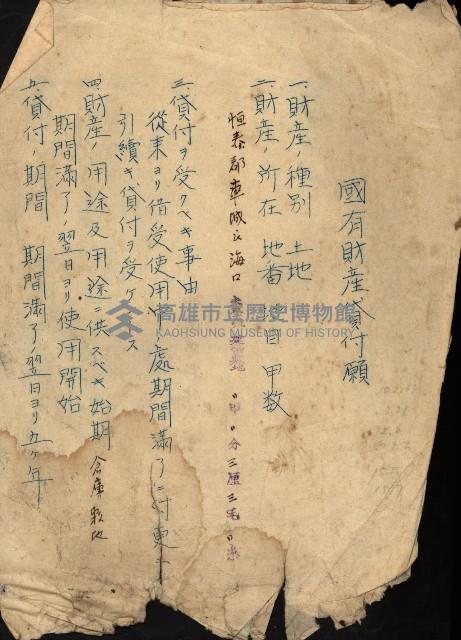 國有財産貸付願
一、財産ノ種別 土地
二、財産ノ所在 地番 地目 甲数
恒春郡車城庄海口 〇甲〇分三厘三毛〇糸
三、貸付ヲ受クベキ事由
從来ヨリ借受使用 處期間滿了ニ付更ニ
引續キ貸付ヲ受ケ ス
四、財産ノ用途及用途ニ供スベキ始期 倉庫敷地
期間滿了ノ翌日ヨリ使用開始
五、貸付ノ期間 期間滿了翌日ヨリ五ケ年
高雄市立歷史博物館
KAOHSIUNG MUSEUM OF HISTORY